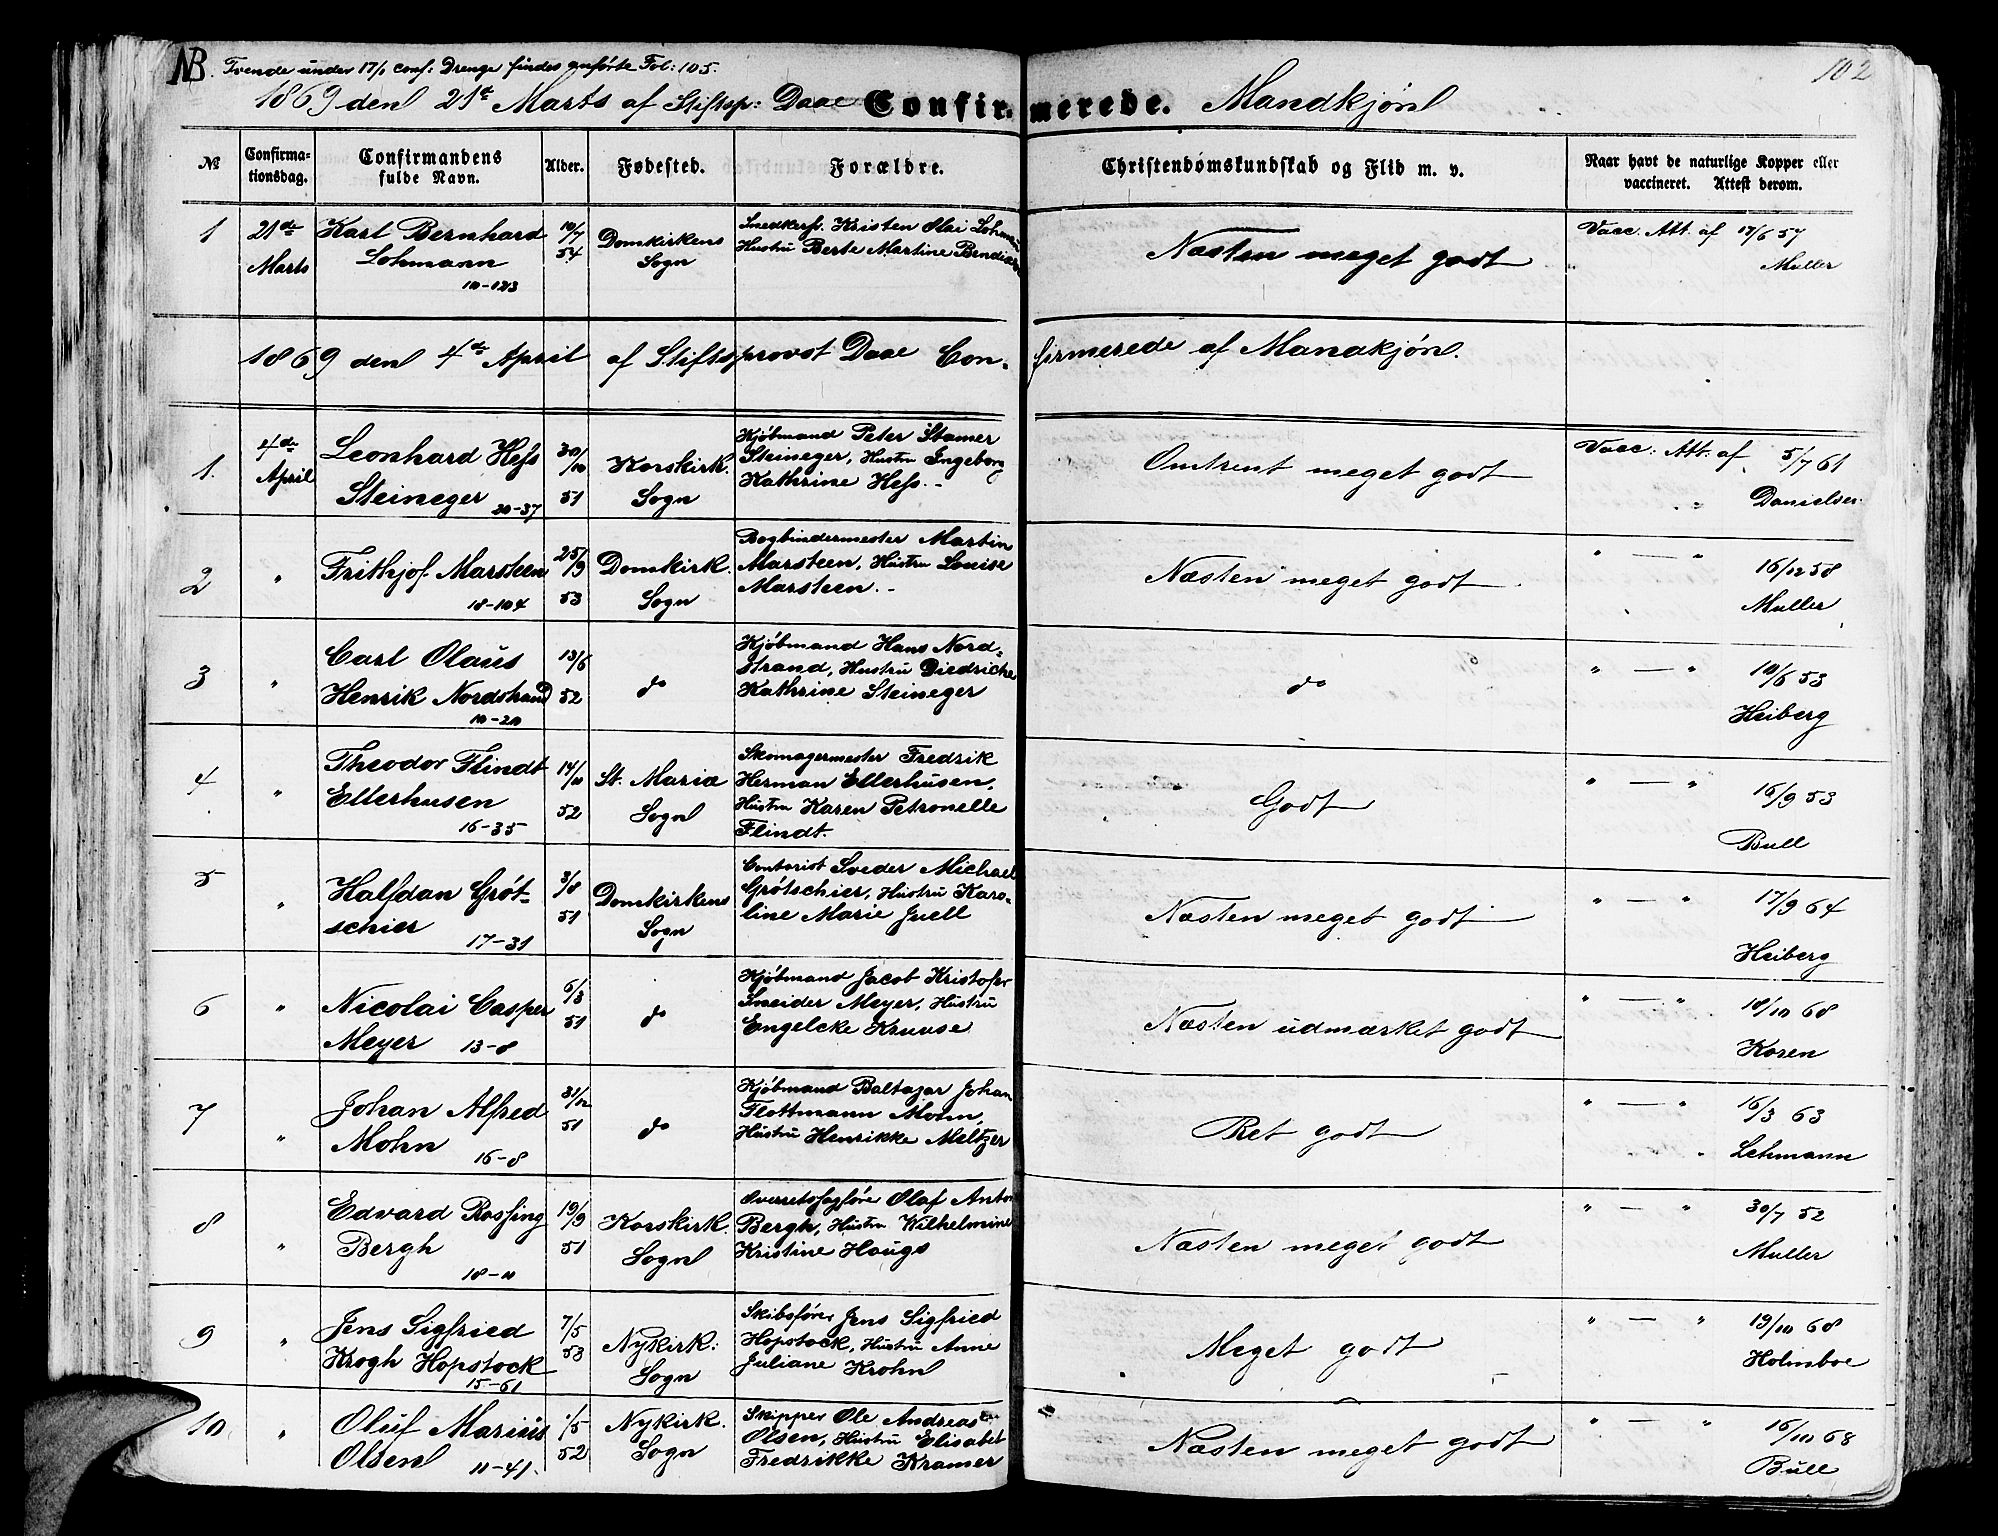 NB. Tvende under 17/1 conf: Drenge findes anförte Fol: 105.
102
1869 den 21de Marts af Stiftsp: Daae Confirmerede. Mandkjøn
No
Confirmationsdag.
Confirmandens fulde Navn.
Alder.
Fødested.
Forældre.
Christendømskundskab og Flid m. v.
Naar havt de naturlige Kopper eller
vaccineret. Attest derom.
1 21de Karl Bernhard 10/7 Domkirkens Smedkersv. Kristen Olai Lohmann
Marts Lohmann 54 Sogn Hustru Berte Martine Bendixen
10-123
Næsten meget godt
Vacc. Att. af 17/6 57
Muller
1869 den 4de April af Stiftsprovst Daae Confirmerede af Mandkjøn.
1. 4de April
Leonhard Hess
Steineger 20-37
30/10 51
Korskirk. Sogn
Kjöbmand Peter Stamer
Steineger, Hustru Ingeborg
Kathrine Hess.
Omtrent meget godt
Vacc. Att. af 5/7 61
Danielsen
2 "
Frithjof Marsteen
18-104
25/9 53
Domkirk. Sogn
Bogbindermester Martin
Marsteen, Hustru Louise
Marsteen.
Næsten meget godt
" — " 16/12 58
Muller
3 "
Carl Olaus
Henrik Nordstrand
10-20
13/6 52
do
Kjöbmand Hans Nord=
strand, Hustru Diedriche
Kathrine Steineger
do
" — " 10/6 53
Heiberg
4 "
Theodor Flindt
Ellerhusen
16-35
14/11 52
St. Mariæ Sogn
Skomagermester Fredrik
Herman Ellerhusen,
Hustru Karen Petronelle
Flindt.
Godt
" — " 16/9 53
Bull
5 "
Halfdan Gröt-
schier 17-31
3/8 51
Domkirkens Sogn
Contorist Sveder Michael
Grötschier, Hustru Karo-
line Marie Juell
Næsten meget godt
" — " 17/9 64
Heiberg
6 "
Nicolai Casper
Meyer 13-8
6/3 51
do
Kjöbmand Jacob Kristofer
Sneider Meyer, Hustru
Engelcke Kruuse
Næsten udmærket godt
" — " 10/10 68
Koren
7 "
Johan Alfred
Mohn 16-8
31/12 51
do
Kjöbmand Baltazar Johan
Flottmann Mohn,
Hustru Henrikke Meltzer
Ret godt
" — " 16/3 63
Lehmann
8 "
Edvard Rossing
Bergh
18-11
19/9 51
Korskirk. Sogn
Overretssagförer Olaf Anton
Bergh, Hustru Wilhelmine
Kristine Hougs
Næsten meget godt
" — " 30/7 52
Muller
9 "
Jens Sigfried
Krogh Hopstock
15-61
7/5 53
Nykirk: Sogn
Skibsförer Jens Sigfried
Hopstock, Hustru Anne
Juliane Krohn
Meget godt
" — " 19/10 68
Holmboe
10 "
Oluf Marius
Olsen 11-41.
1/5 52
Nykirk. Sogn
Skipper Ole Andreas
Olsen, Hustru Elisabet
Fredrikke Kramer
Næsten meget godt
" — " 16/10 68
Bull